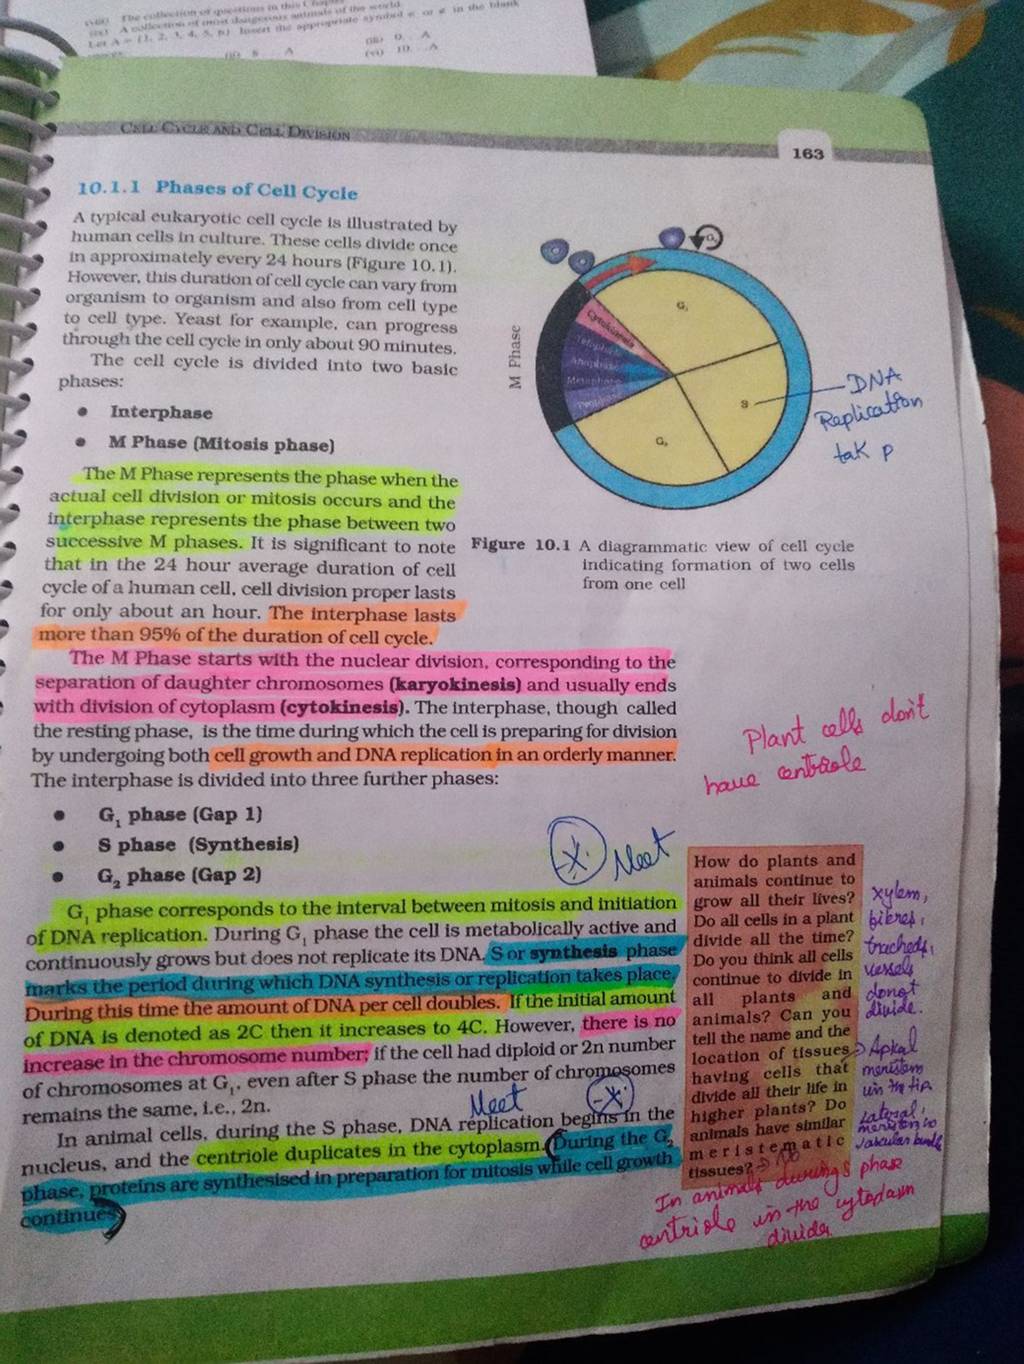 (viii) The collection of questions in this Chapter
(ix) A collection of most dangerous animals of the world.
Let A = {1, 2, 3, 4, 5, 6}. Insert the appropriate symbol ∈ or ∉ in the blank
(ii) 8 . . . A
(iii) 0. . .A
(vi) 10. . .A
CELL CYCLE AND CELL DIVISION
163
10.1.1 Phases of Cell Cycle
A typical eukaryotic cell cycle is illustrated by
human cells in culture. These cells divide once
in approximately every 24 hours (Figure 10.1).
However, this duration of cell cycle can vary from
organism to organism and also from cell type
to cell type. Yeast for example, can progress
through the cell cycle in only about 90 minutes.
The cell cycle is divided into two basic
phases:
• Interphase
• M Phase (Mitosis phase)
The M Phase represents the phase when the
actual cell division or mitosis occurs and the
interphase represents the phase between two
successive M phases. It is significant to note
that in the 24 hour average duration of cell
cycle of a human cell, cell division proper lasts
for only about an hour. The interphase lasts
more than 95% of the duration of cell cycle.
M Phase
Cytokinesis
Telophase
Anaphase
Metaphase
Prophase
G₀
G₁
S
G₂
DNA
Replication
tak p
Figure 10.1 A diagrammatic view of cell cycle
indicating formation of two cells
from one cell
The M Phase starts with the nuclear division, corresponding to the
separation of daughter chromosomes (karyokinesis) and usually ends
with division of cytoplasm (cytokinesis). The interphase, though called
the resting phase, is the time during which the cell is preparing for division
by undergoing both cell growth and DNA replication in an orderly manner.
The interphase is divided into three further phases:
Plant cells don't
have centriole
• G₁ phase (Gap 1)
• S phase (Synthesis)
• G₂ phase (Gap 2)
Neet
G₁ phase corresponds to the interval between mitosis and initiation
of DNA replication. During G₁ phase the cell is metabolically active and
continuously grows but does not replicate its DNA. S or synthesis phase
marks the period during which DNA synthesis or replication takes place.
During this time the amount of DNA per cell doubles. If the initial amount
of DNA is denoted as 2C then it increases to 4C. However, there is no
increase in the chromosome number; if the cell had diploid or 2n number
of chromosomes at G₁, even after S phase the number of chromosomes
remains the same, i.e., 2n.
Neet
In animal cells, during the S phase, DNA replication begins in the
nucleus, and the centriole duplicates in the cytoplasm. (During the G₂
phase, proteins are synthesised in preparation for mitosis while cell growth
continues)
How do plants and
animals continue to
grow all their lives?
Do all cells in a plant
divide all the time?
Do you think all cells
continue to divide in
all plants and
animals? Can you
tell the name and the
location of tissues
having cells that
divide all their life in
higher plants? Do
animals have similar
meristematic
tissues? → no
xylem,
fibres,
tracheds,
vessels
donot
divide.
→ Apkal
meristem
in the tip
Lateral
meristem in
vascular bundle
In animals during s phase
centriole in the cytoplasm
divides